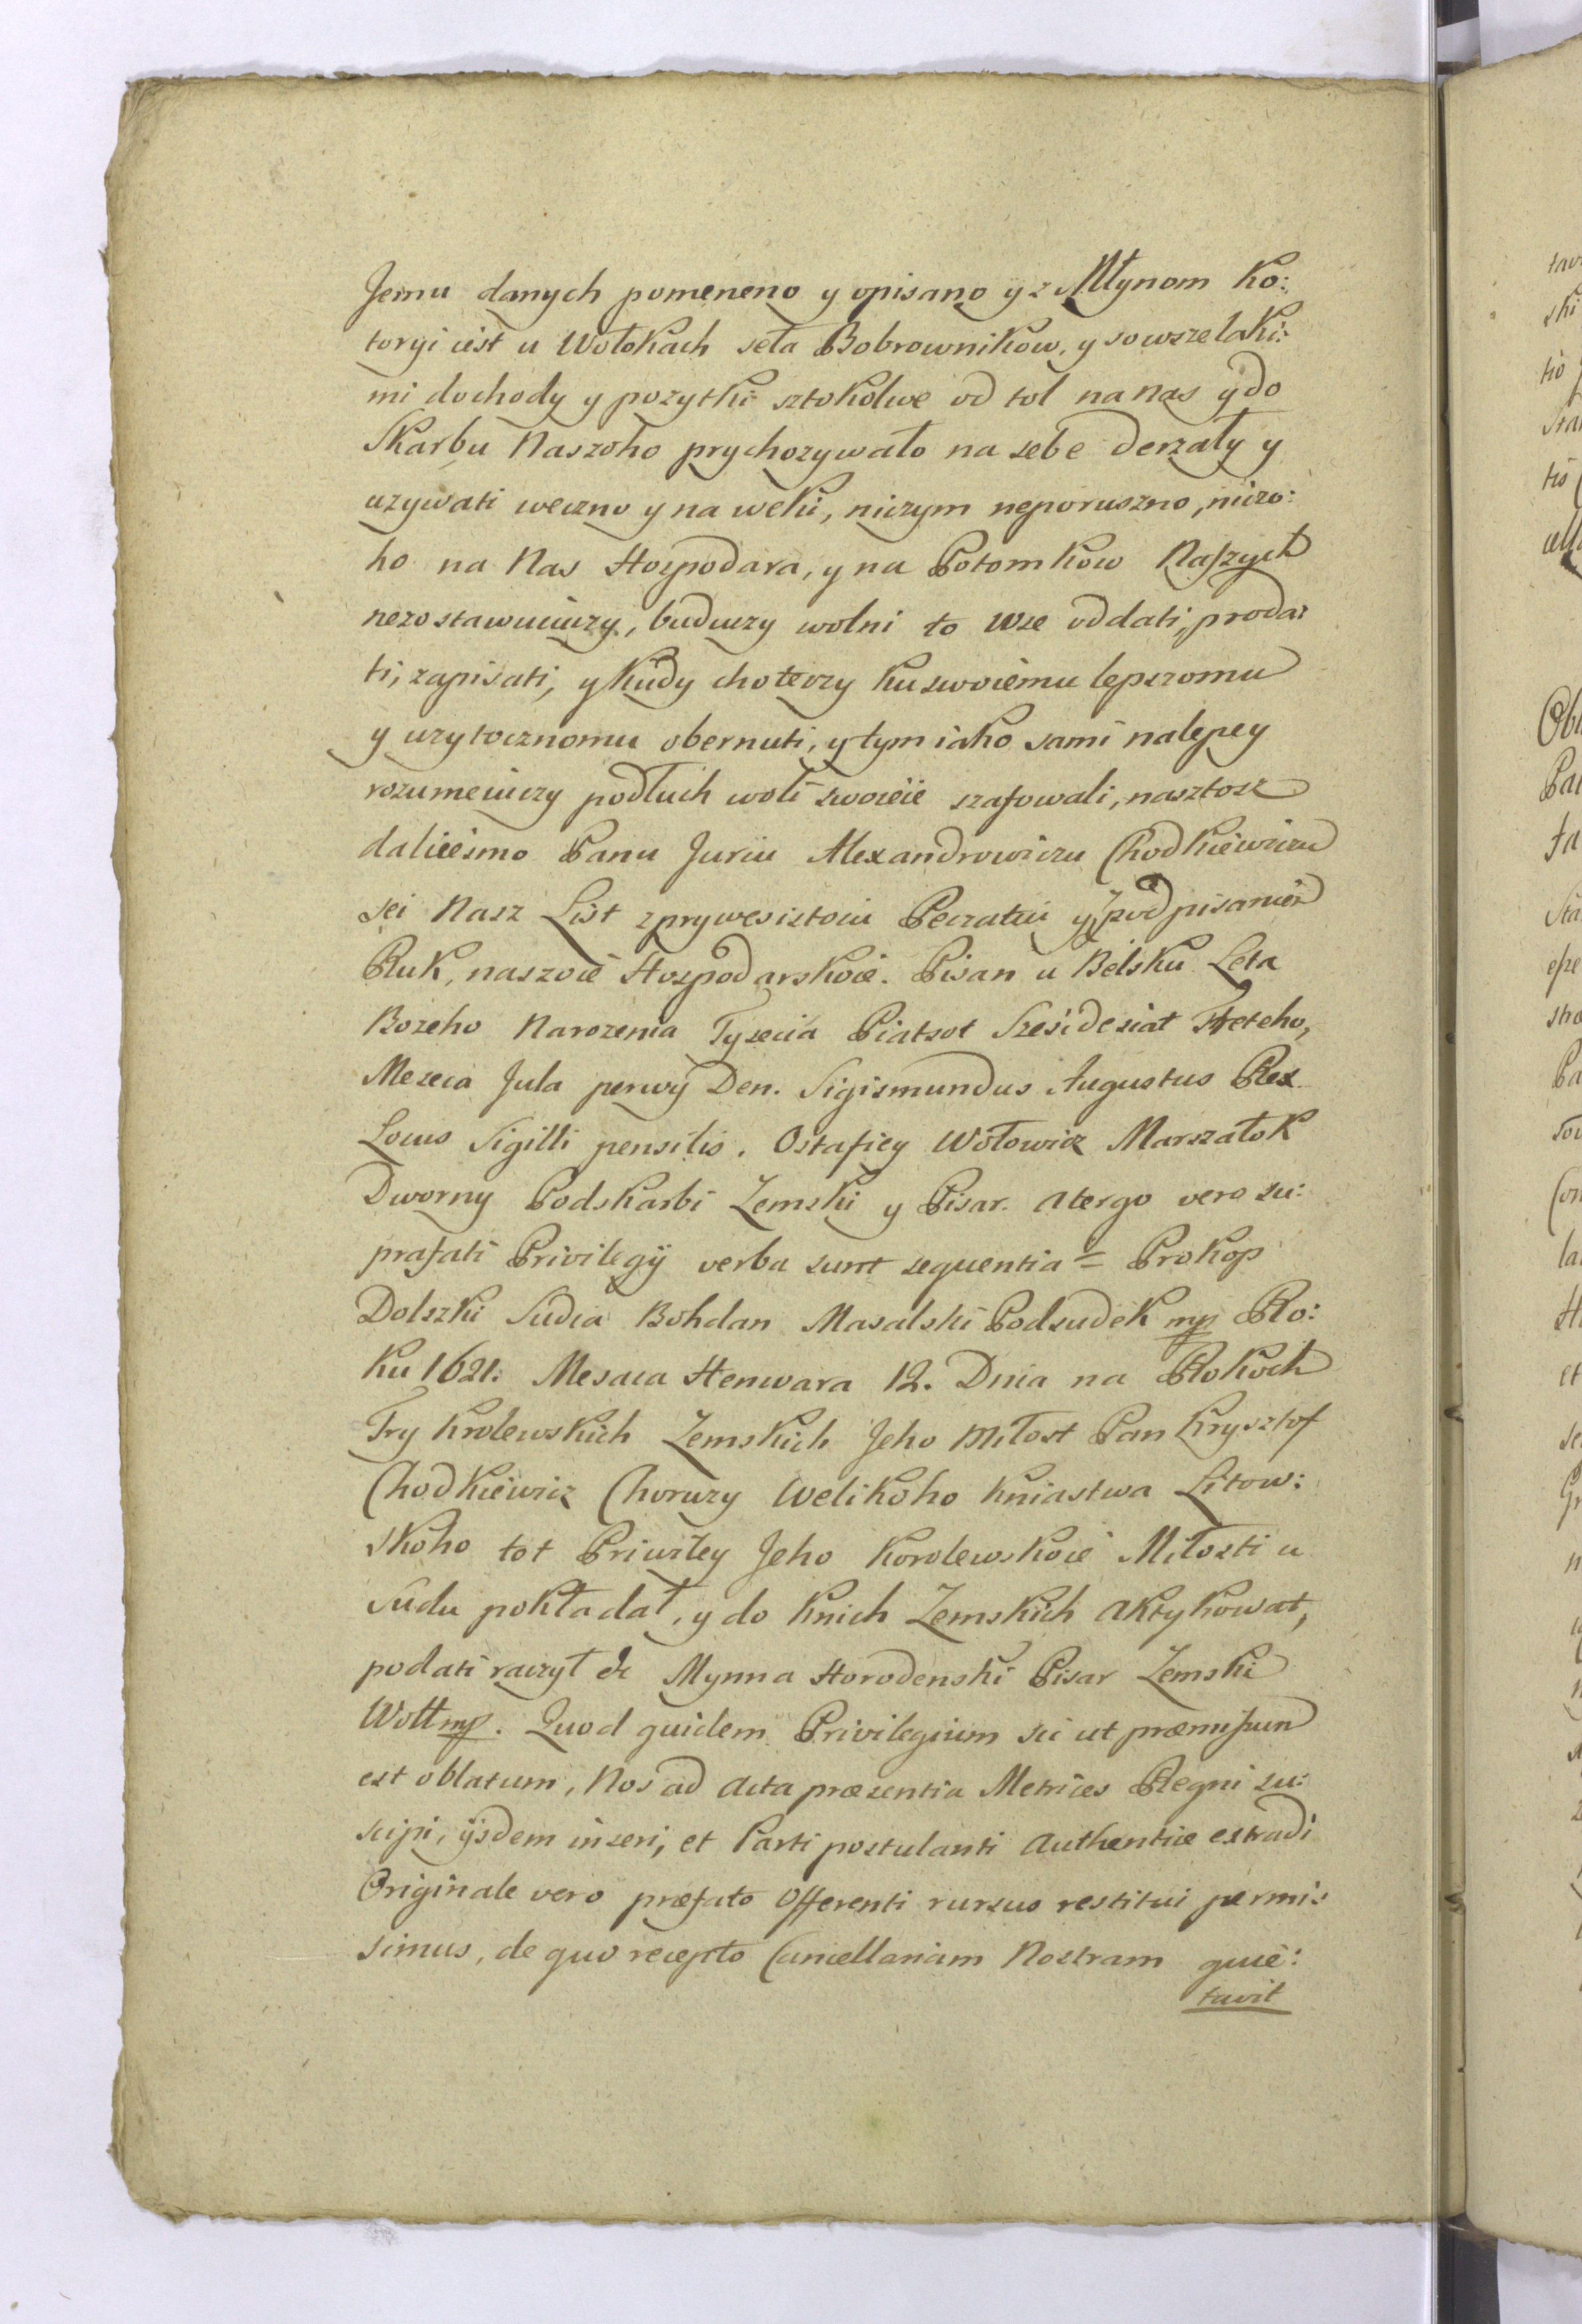 Jemu danych pomeneno y opisano y z Młynom Ko:
toryi iest u Wołokach seła Bobrownikow, y sowszelaki:
mi dochody y pozytki sztokolwe od tol na nas y do
Skarbu Naszoho prychozywało na sebe derzały y
uzywati weczno y na weki, niczym neporuszno, niczo:
ho na Nas Hospodara, y na Potomkow Naszych
nezostawuiuczy, buduczy wolni to wse oddati, proda:
ti, zapisati, y Kudy choteczy ku swoiemu lepszomu
y uzytocznomu obernuti, y tym iako sami nalepey
rozumeiuczy podłuh woli swoieie szafowali, nasztosz
daliesmo Panu Juriu Alexandrowiczu Chodkiewiczu
sei Nasz List z prywesistoiu Peczatiu y z podpisaniem
Ruk, naszoie Hospodarskoie. Pisan u Belsku Leta
Bozeho Narozenia Tysecia Piatsot Szesidesiat Treteho,
Meseca Jula perwy Den. Sigismundus Augustus Rex
Locus Sigilli pensilis. Ostafiey Wołowicz Marszałok
Dworny Podskarbi Zemski y Pisar. A tergo vero su:
prafati Privilegij verba sunt sequentia = Prokop
Dolszki Sudia Bohdan Masalski Podsudek mp Ro:
ku 1621: Mesaca Henwara 12. Dnia na Rokoch
Try Krolewskich Zemskich Jeho Miłost Pan Krysztof
Chodkiewicz Choruzy Welikoho Kniastwa Litow:
skoho tot Priwiley Jeho Korolewskoie Miłosti u
Sudu pokładał, y do Knich Zemskich Aktykował,
podati raczył & Mynna Horodenski Pisar Zemski
Wołł mp. Quod quidem Privilegium sic ut præmissum
est oblatum, Nos ad Acta præsentia Metrices Regni su:
scipi, ijsdem inseri, et Parti postulanti Authentice extradi
Originale vero præfato Offerenti rursus restitui permi:
simus, de quo recepto Cancellariam Nostram quie:
tavit